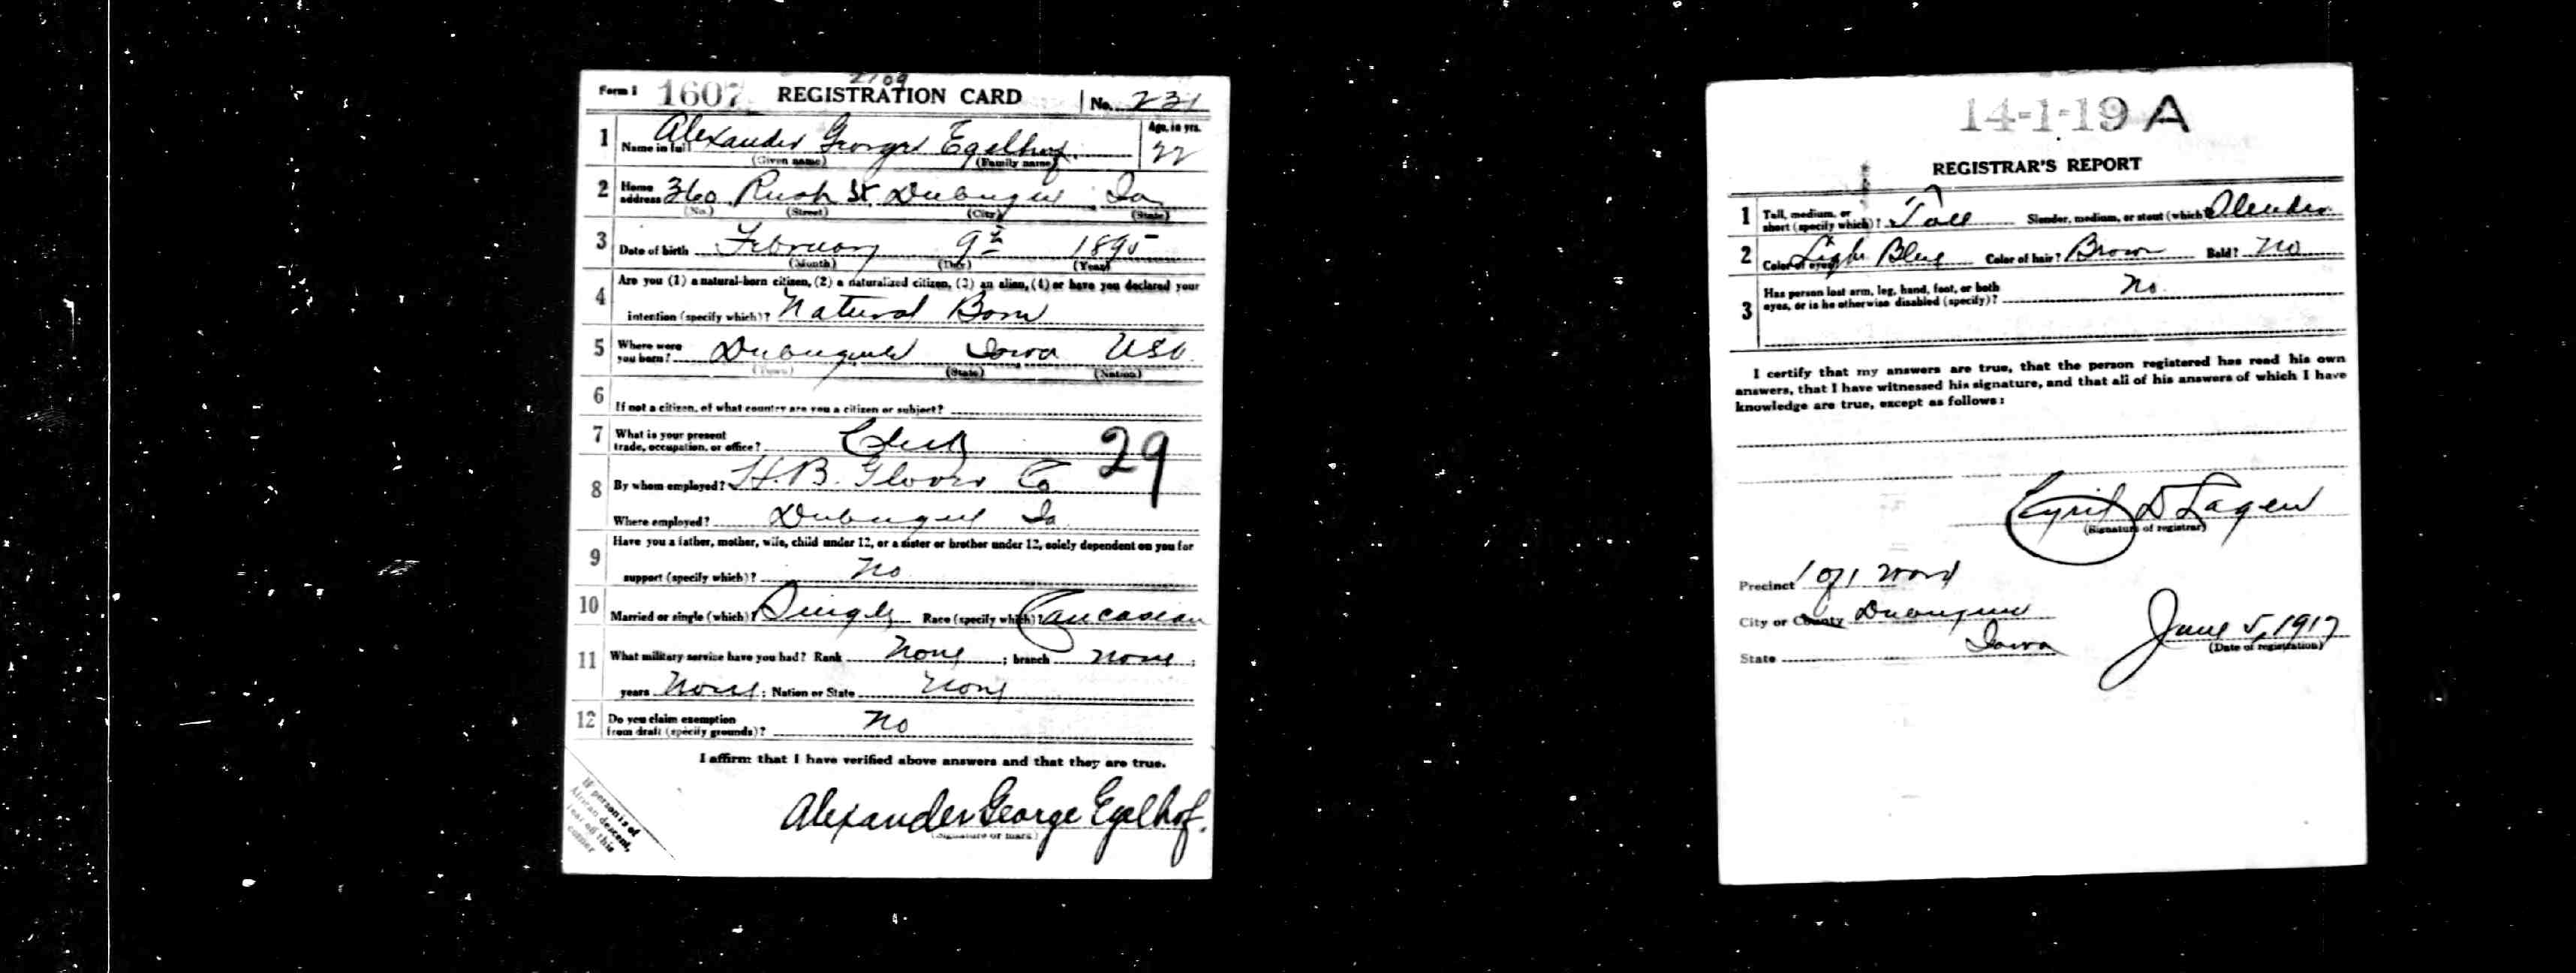 2109
Form 1 1607 REGISTRATION CARD No. 231
1 Name in full Alexander George Egelhof. Age, in yrs. 22
(Given name) (Family name)
2 Home address 360 Rush St Dubuque Ia
(No.) (Street) (City) (State)
3 Date of birth February 9th 1895
(Month) (Day) (Year)
4 Are you (1) a natural-born citizen, (2) a naturalized citizen, (3) an alien, (4) or have you declared your
intention (specify which)? Natural Born
5 Where were you born? Dubuque Iowa USA
(Town) (State) (Nation)
6 If not a citizen, of what country are you a citizen or subject?
7 What is your present
trade, occupation, or office? Clerk 29
8 By whom employed? H. B. Glover Co
Where employed? Dubuque Ia
9 Have you a father, mother, wife, child under 12, or a sister or brother under 12, solely dependent on you for
support (specify which)? No
10 Married or single (which)? Single Race (specify which)? Caucasian
11 What military service have you had? Rank None ; branch none ;
years None ; Nation or State None
12 Do you claim exemption
from draft (specify grounds)? No
I affirm that I have verified above answers and that they are true.
Alexander George Egelhof.
(Signature or mark)
If person is of
African descent,
tear off this
corner
14-1-19 A
REGISTRAR'S REPORT
1 Tall, medium, or
short (specify which)? Tall Slender, medium, or stout (which)? Slender
2 Color of eyes? Light Blue Color of hair? Brown Bald? No
3 Has person lost arm, leg, hand, foot, or both
eyes, or is he otherwise disabled (specify)? No.
I certify that my answers are true, that the person registered has read his own
answers, that I have witnessed his signature, and that all of his answers of which I have
knowledge are true, except as follows:
Cyril D Lagen
(Signature of registrar)
Precinct 1 of 1 Ward
City or County Dubuque
State Iowa
June 5, 1917
(Date of registration)